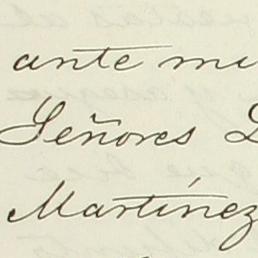 ante mi
Señores D
Martínez